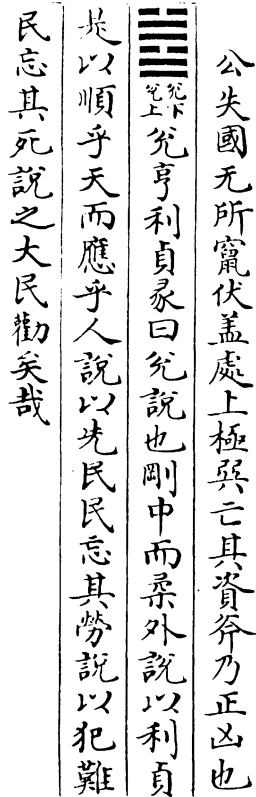 公失國无所竄伏盖處上極巽亡其資斧乃正凶也
䷹兌下兌上兌亨利貞彖曰兌說也剛中而柔外說以利貞
是以順乎天而應乎人說以先民民忘其勞說以犯難
民忘其死說之大民勸矣哉